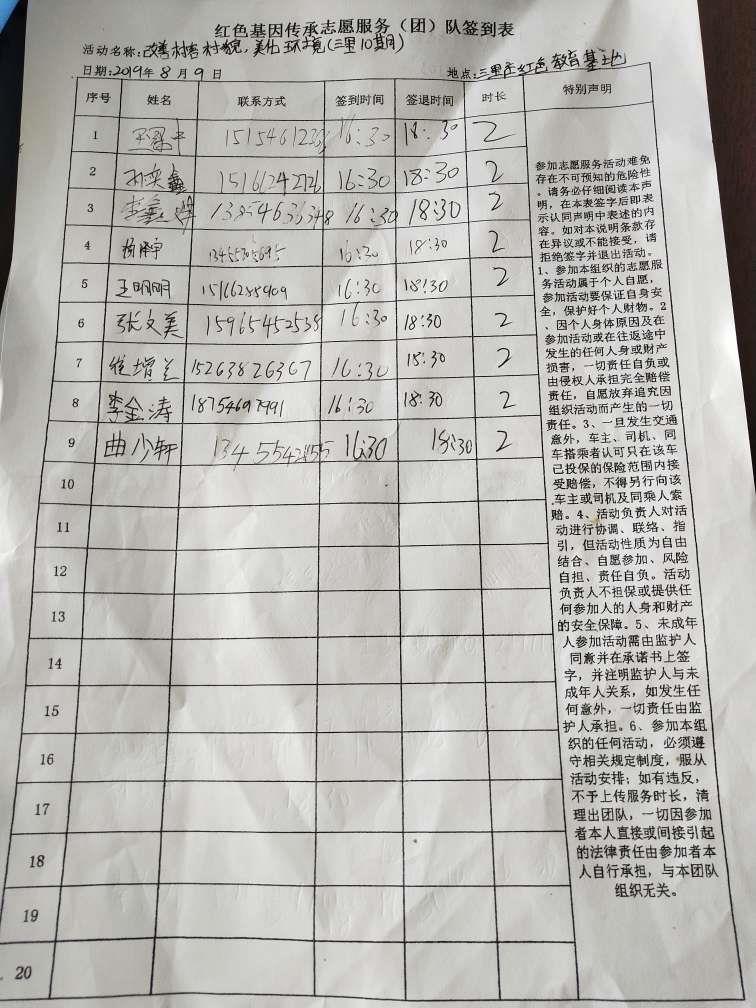 红色基因传承志愿服务（团）队签到表
活动名称：改善村容村貌，美化环境（三里10期）
日期：2019年 8 月 9 日 地点：三里庄红色教育基地
序号 姓名 联系方式 签到时间 签退时间 时长 特别声明
1 16:30 18:30 2
2 16:30 18:30 2
3 李鑫 16:30 18:30 2
4 16:30 18:30 2
5 王明明 15166285909 16:30 18:30 2
6 张文美 15965452538 16:30 18:30 2
7 15263826367 16:30 18:30 2
8 李金涛 16:30 18:30 2
9 曲少轩 16:30 18:30 2
10
11
12
13
14
15
16
17
18
19
20
参加志愿服务活动难免
存在不可预知的危险性
。请务必仔细阅读本声
明，在本表签字后即表
示认同声明中表述的内
容。如对本说明条款存
在异议或不能接受，请
拒绝签字并退出活动。
1、参加本组织的志愿服
务活动属于个人自愿，
参加活动要保证自身安
全，保护好个人财物。2
、因个人身体原因及在
参加活动或在往返途中
发生的任何人身或财产
损害，一切责任自负或
由侵权人承担完全赔偿
责任，自愿放弃追究因
组织活动而产生的一切
责任。3、一旦发生交通
意外，车主、司机、同
车搭乘者认可只在该车
已投保的保险范围内接
受赔偿，不得另行向该
车主或司机及同乘人索
赔。4、活动负责人对活
动进行协调、联络、指
引，但活动性质为自由
结合、自愿参加、风险
自担、责任自负。活动
负责人不担保或提供任
何参加人的人身和财产
的安全保障。5、未成年
人参加活动需由监护人
同意并在承诺书上签
字，并注明监护人与未
成年人关系，如发生任
何意外，一切责任由监
护人承担。6、参加本组
织的任何活动，必须遵
守相关规定制度，服从
活动安排；如有违反，
不予上传服务时长，清
理出团队，一切因参加
者本人直接或间接引起
的法律责任由参加者本
人自行承担，与本团队
组织无关。